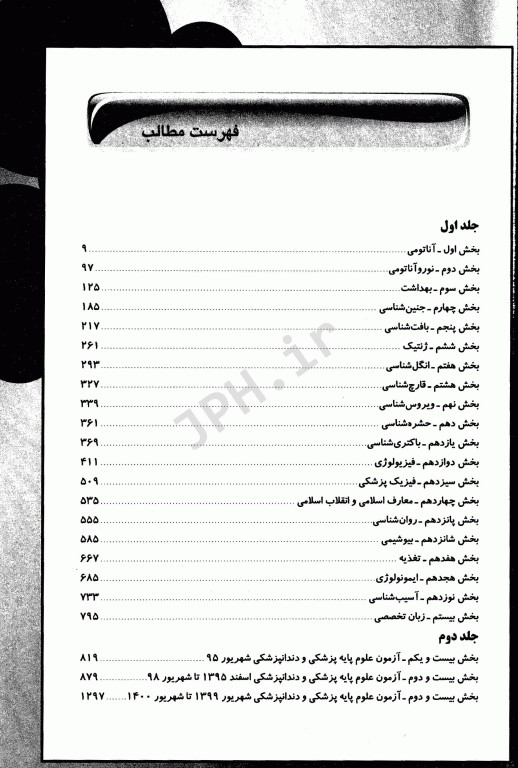 فهرست مطالب
جلد اول
بخش اول ـ آناتومی ۹
بخش دوم ـ نوروآناتومی ۹۷
بخش سوم ـ بهداشت ۱۲۵
بخش چهارم ـ جنین‌شناسی ۱۸۵
بخش پنجم ـ بافت‌شناسی ۲۱۷
بخش ششم ـ ژنتیک ۲۶۱
بخش هفتم ـ انگل‌شناسی ۲۹۳
بخش هشتم ـ قارچ‌شناسی ۳۲۷
بخش نهم ـ ویروس‌شناسی ۳۳۹
بخش دهم ـ حشره‌شناسی ۳۶۱
بخش یازدهم ـ باکتری‌شناسی ۳۶۹
بخش دوازدهم ـ فیزیولوژی ۴۱۱
بخش سیزدهم ـ فیزیک پزشکی ۵۰۹
بخش چهاردهم ـ معارف اسلامی و انقلاب اسلامی ۵۳۵
بخش پانزدهم ـ روان‌شناسی ۵۵۵
بخش شانزدهم ـ بیوشیمی ۵۸۵
بخش هفدهم ـ تغذیه ۶۶۷
بخش هجدهم ـ ایمونولوژی ۶۸۵
بخش نوزدهم ـ آسیب‌شناسی ۷۳۳
بخش بیستم ـ زبان تخصصی ۷۹۵
جلد دوم
بخش بیست و یکم ـ آزمون علوم پایه پزشکی و دندانپزشکی شهریور ۹۵ ۸۱۹
بخش بیست و دوم ـ آزمون علوم پایه پزشکی و دندانپزشکی اسفند ۱۳۹۵ تا شهریور ۹۸ ۸۷۹
بخش بیست و دوم ـ آزمون علوم پایه پزشکی و دندانپزشکی شهریور ۱۳۹۹ تا شهریور ۱۴۰۰ ۱۲۹۷
JPH.ir